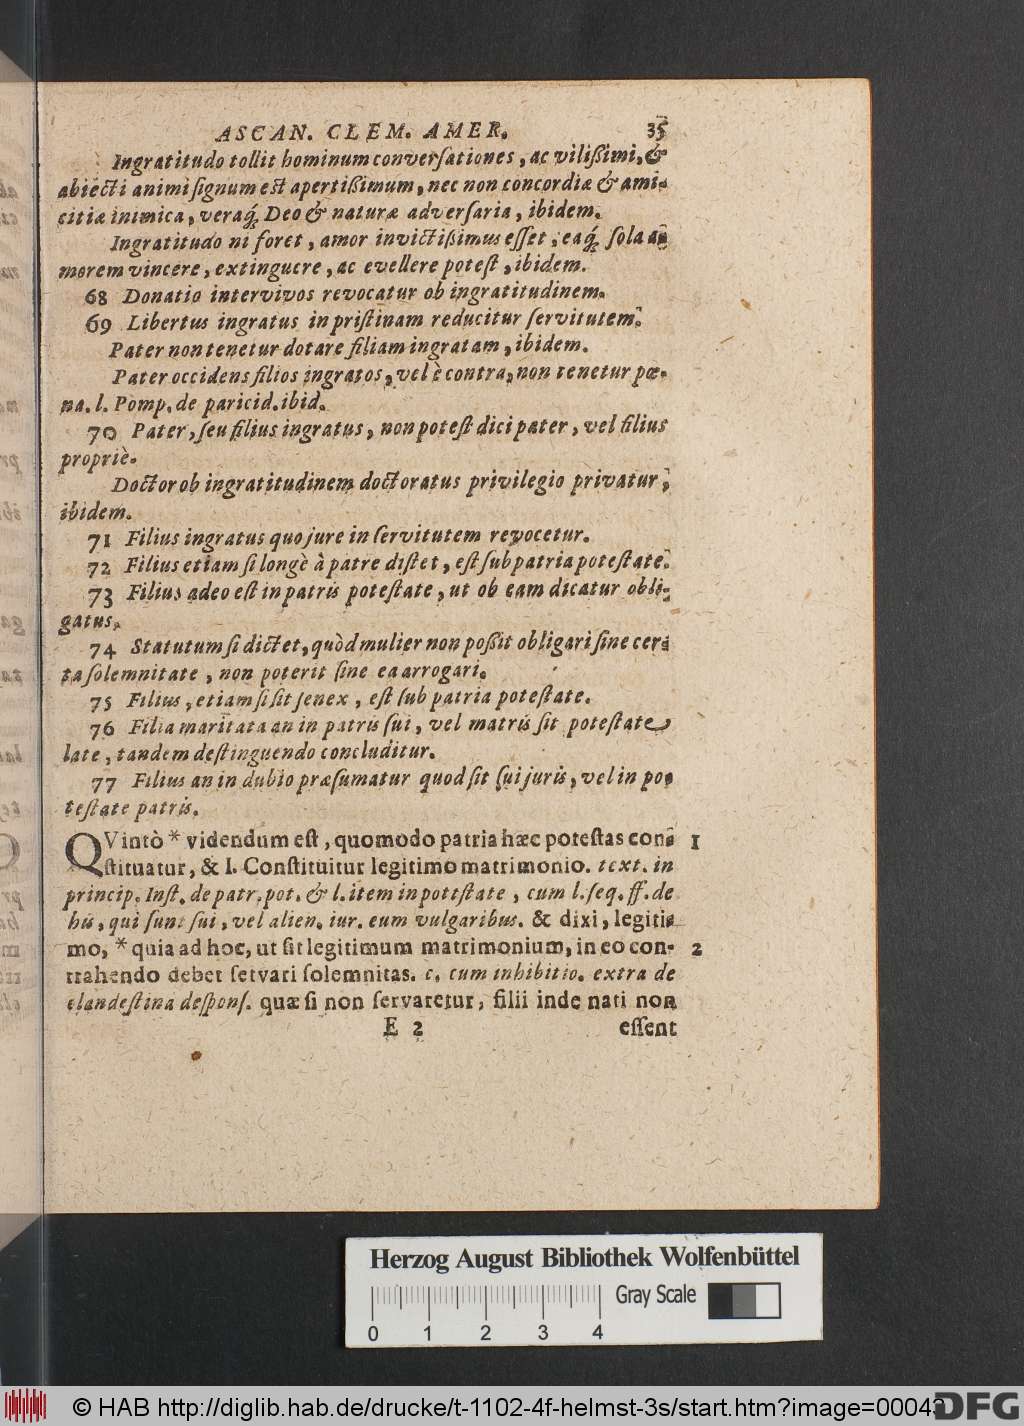 ASCAN. CLEM. AMER. 35
Ingratitudo tollit hominum conversationes, ac vilißimi, &
abiecti animi signum est apertißimum, nec non concordiæ & ami-
citiæ inimica, veraq́; Deo & naturæ adversaria, ibidem.
Ingratitudo ni foret, amor invictißimus esset, eaq́; sola a-
morem vincere, extinguere, ac evellere potest, ibidem.
68 Donatio inter vivos revocatur ob ingratitudinem.
69 Libertus ingratus in pristinam reducitur servitutem.
Pater non tenetur dotare filiam ingratam, ibidem.
Pater occidens filios ingratos, vel è contra, non tenetur pœ-
na. l. Pomp. de paricid. ibid.
70 Pater, seu filius ingratus, non potest dici pater, vel filius
propriè.
Doctor ob ingratitudinem doctoratus privilegio privatur,
ibidem.
71 Filius ingratus quo jure in servitutem revocetur.
72 Filius etiam si longè à patre distet, est sub patria potestate.
73 Filius adeo est in patris potestate, ut ob eam dicatur obli-
gatus.
74 Statutum si dictet, quòd mulier non poßit obligari sine cer-
ta solemnitate, non poterit sine ea arrogari.
75 Filius, etiam si sit senex, est sub patria potestate.
76 Filia maritata an in patris sui, vel matris sit potestate
late, tandem destinguendo concluditur.
77 Filius an in dubio præsumatur quod sit sui juris, vel in po-
testate patris.
QVintò * videndum est, quomodo patria hæc potestas con- 1
stituatur, & I. Constituitur legitimo matrimonio. text. in
princip. Inst. de patr. pot. & l. item in pottstate, cum l. seq. ff. de
his, qui sunt sui, vel alien. iur. eum vulgaribus. & dixi, legiti-
mo, * quia ad hoc, ut sit legitimum matrimonium, in eo con- 2
trahendo debet servari solemnitas. c. cum inhibitio. extra de
clandestina despons. quæ si non servaretur, filii inde nati non
E 2 essent
Herzog August Bibliothek Wolfenbüttel
Gray Scale
0 1 2 3 4
© HAB http://diglib.hab.de/drucke/t-1102-4f-helmst-3s/start.htm?image=00043
DFG